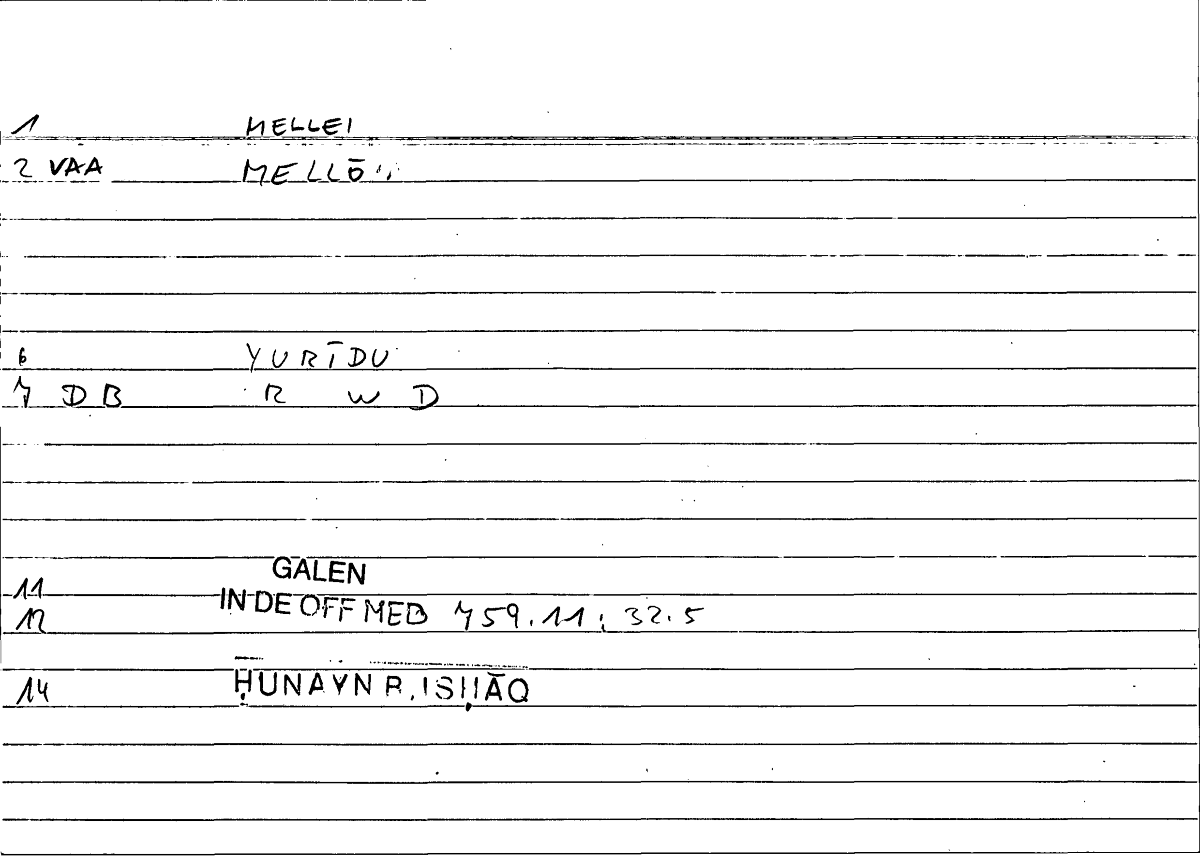 1 MELLEI
2 VAA MELLŌ
6 YURĪDU
7 DB R W D
GALEN
11
12 IN DE OFF MED 759.11; 32.5
14 ḤUNAYN B. ISḤĀQ